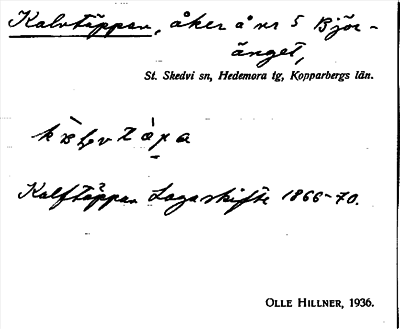 Kalvtäppan, åker å nr 5 Björ-
änget,
St. Skedvi sn, Hedemora tg, Kopparbergs län.
Kalftäppan Lagaskifte 1866-70.
OLLE HILLNER, 1936.